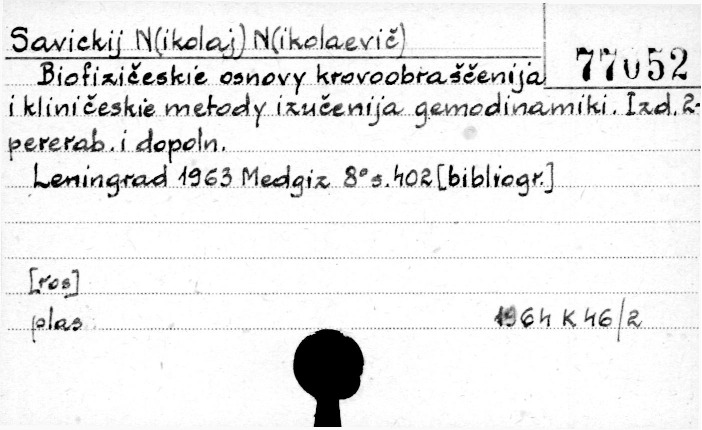 Savickij N(ikolaj) N(ikolaevič)
77052
Biofizičeskie osnovy krovoobraščenija
i kliničeskie metody izučenija gemodinamiki. Izd. 2.
pererab. i dopoln.
Leningrad 1963 Medgiz 8° s. 402 [bibliogr.]
[ros]
plas
1964 K 46/2